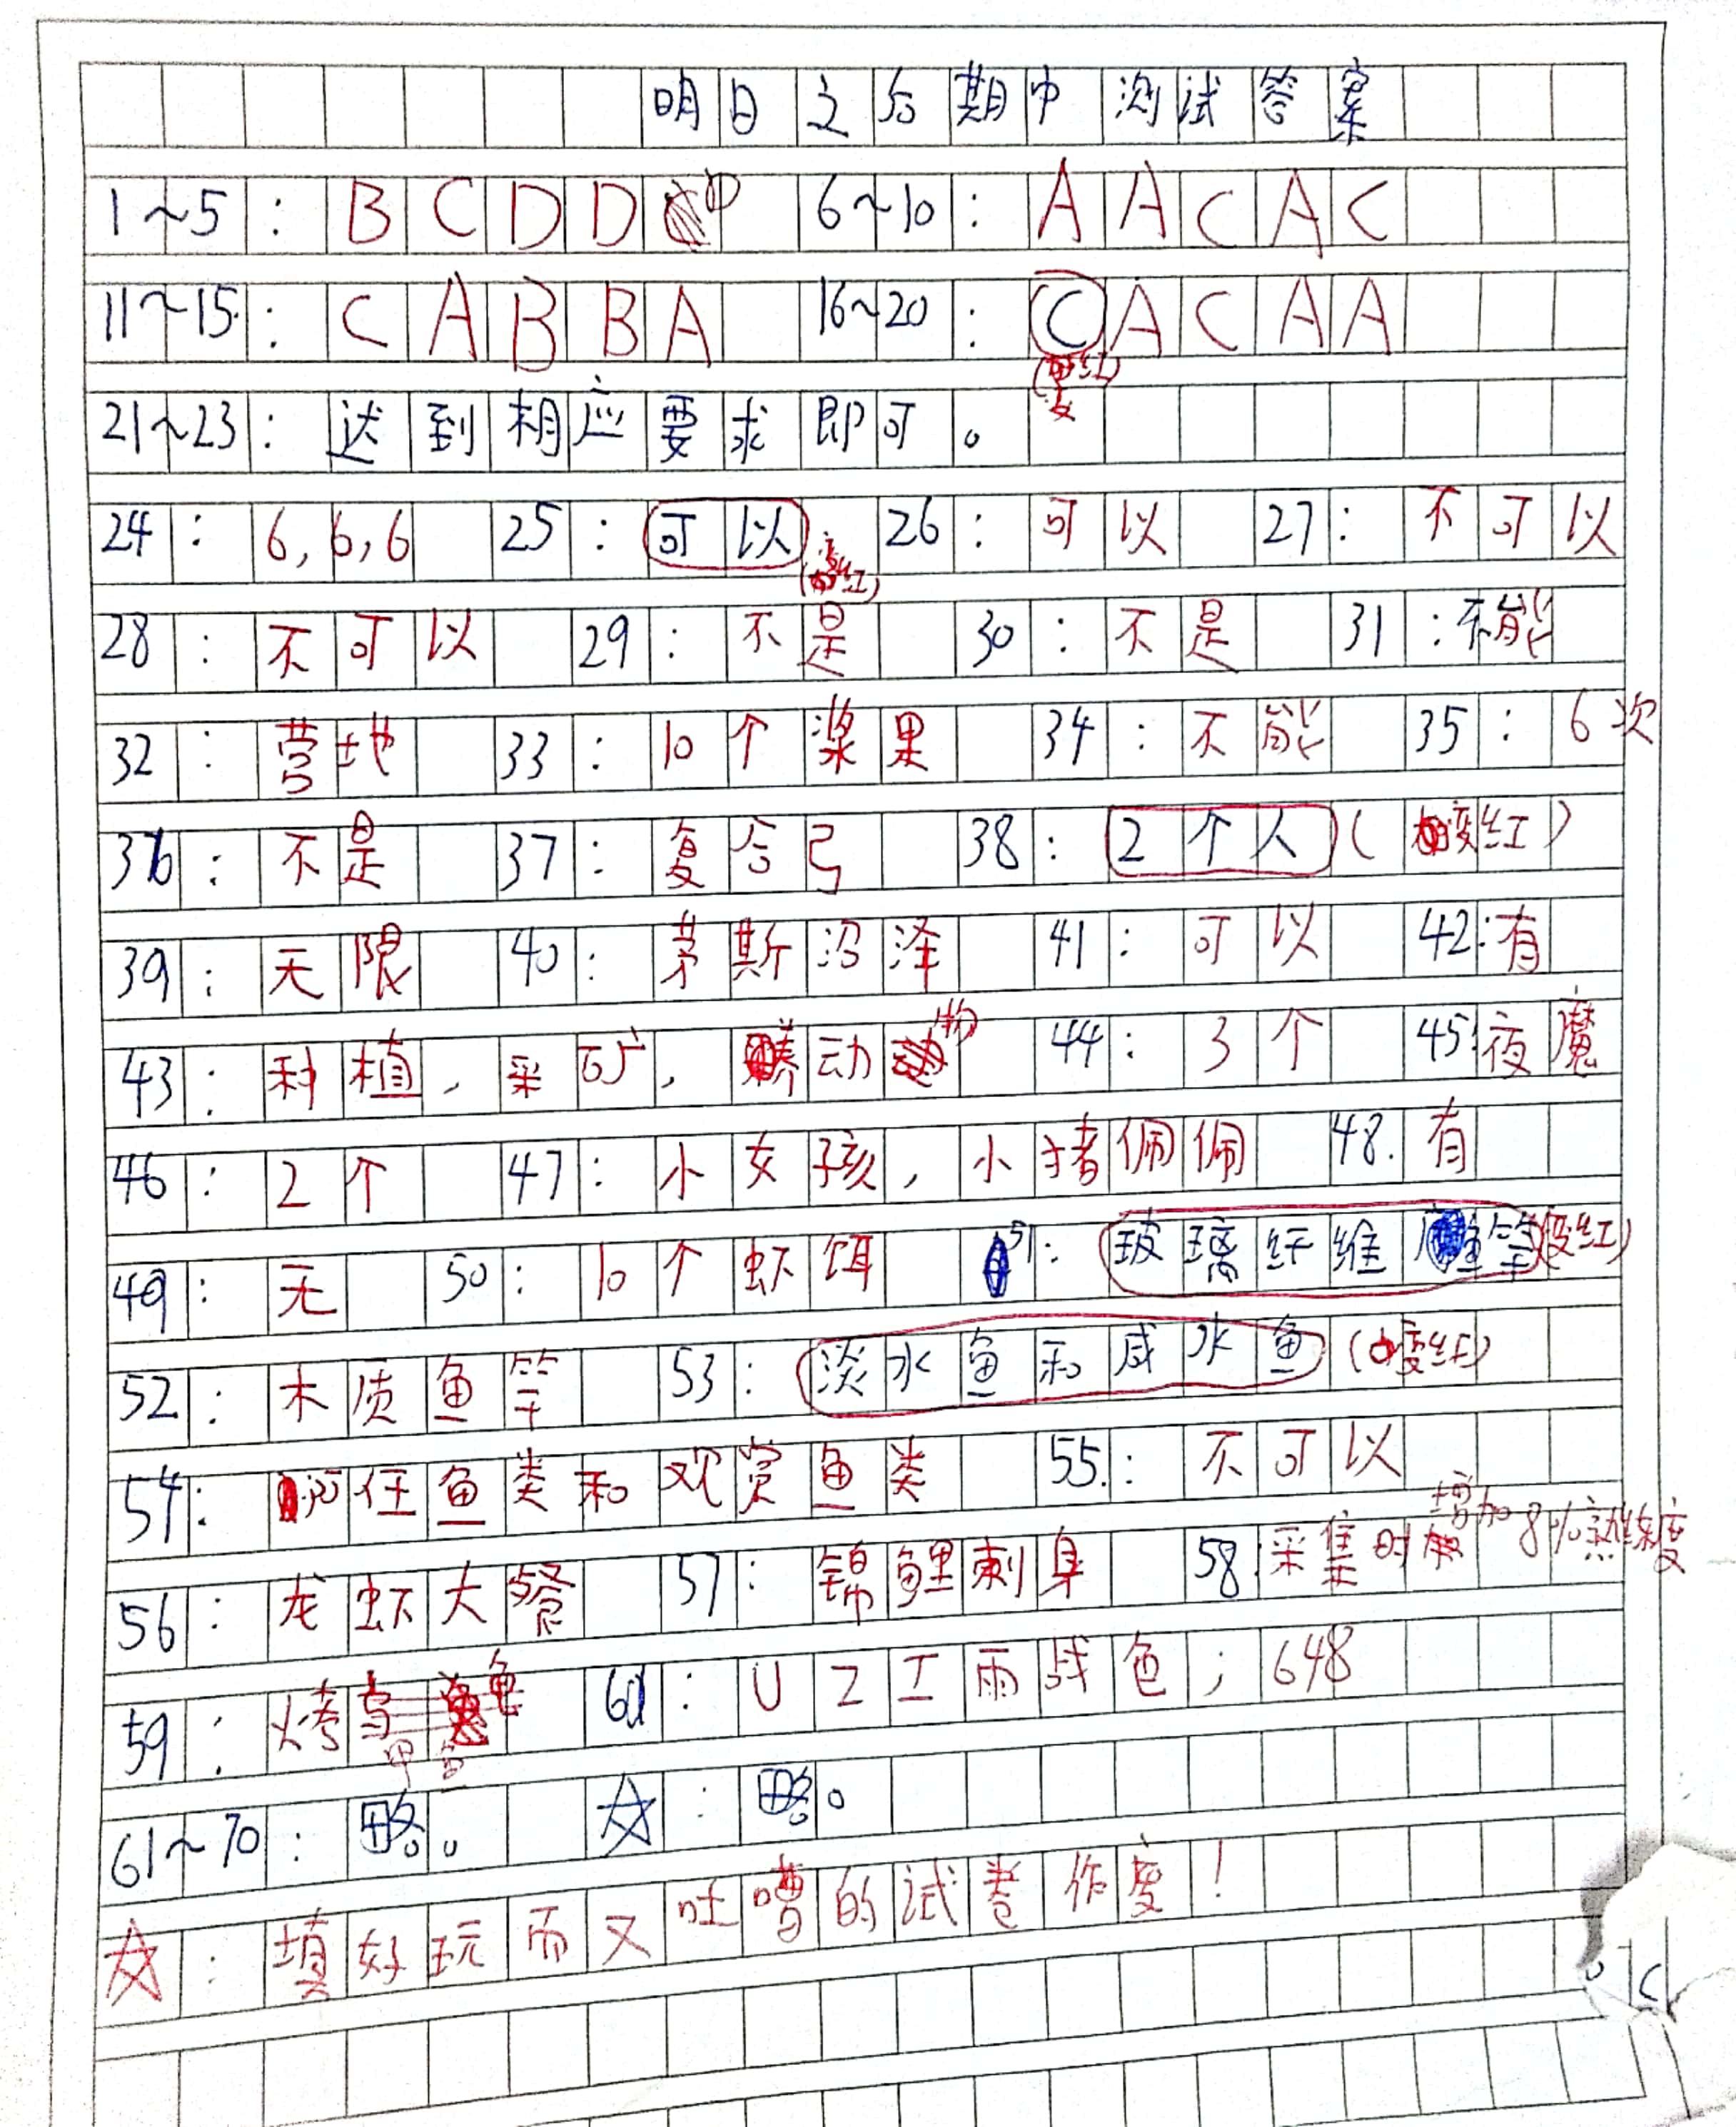 明日之后期中测试答案
1~5: B C D D D 6~10: A A C A C
11~15: C A B B A 16~20: C A C A A
(变红)
21~23: 达到相应要求即可。
24: 6,6,6 25: 可以 (变红) 26: 可以 27: 不可以
28: 不可以 29: 不是 30: 不是 31: 不能
32: 营地 33: 10个浆果 34: 不能 35: 6次
36: 不是 37: 复合弓 38: 2个人(变红)
39: 无限 40: 茅斯沼泽 41: 可以 42: 有
43: 种植,采矿,动物 44: 3个 45: 夜魔
46: 2个 47: 小女孩,小猪佩佩 48. 有
49: 无 50: 10个虾饵 51: 玻璃纤维竿(变红)
52: 木质鱼竿 53: 淡水鱼和咸水鱼(变红)
54: 任鱼类和观赏鱼类 55.: 不可以
56: 龙虾大餐 57: 锦鲤刺身 58. 采集时增加8%熟练度
59: 烤 甲鱼 60: UZI雨战色; 648
61~70: 略。 ☆: 略。
☆: 填好玩而又吐嘈的试卷作废!